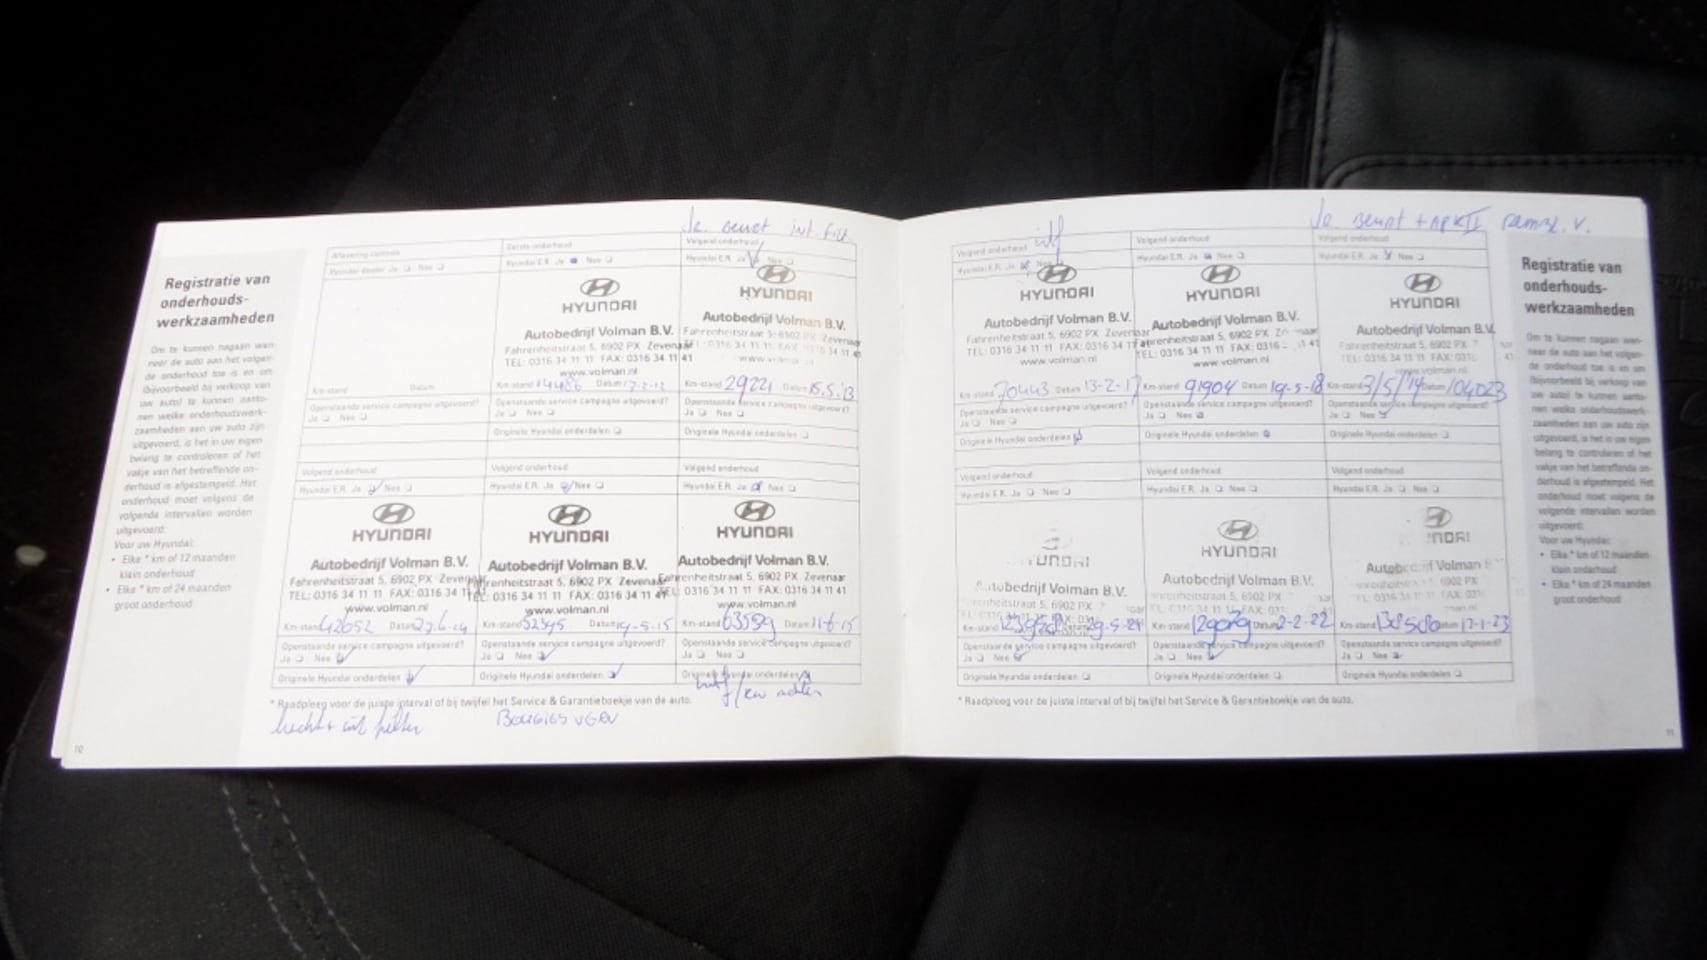 Registratie van
onderhouds-
werkzaamheden
Om te kunnen nagaan wan-
neer de auto aan het volgen-
de onderhoud toe is en om
(bijvoorbeeld bij verkoop van
uw auto) te kunnen aanto-
nen welke onderhoudswerk-
zaamheden aan uw auto zijn
uitgevoerd, is het in uw eigen
belang te controleren of het
vakje van het betreffende on-
derhoud is afgestempeld. Het
onderhoud moet volgens de
volgende intervallen worden
uitgevoerd:
Voor uw Hyundai:
• Elke * km of 12 maanden
klein onderhoud
• Elke * km of 24 maanden
groot onderhoud
10
Aflevering controle
Hyundai-dealer Ja Nee
Km-stand Datum
Openstaande service campagne uitgevoerd?
Ja Nee
Eerste onderhoud
Hyundai E.R. Ja Nee
HYUNDAI
Autobedrijf Volman B.V.
Fahrenheitstraat 5, 6902 PX Zevenaar
TEL: 0316 34 11 11 FAX: 0316 34 11 41
www.volman.nl
Km-stand 14486 Datum
Openstaande service campagne uitgevoerd?
Ja Nee
Originele Hyundai onderdelen
Volgend onderhoud
Hyundai E.R. Ja Nee
HYUNDAI
Autobedrijf Volman B.V.
Fahrenheitstraat 5, 6902 PX Zevenaar
www.volman.nl
Km-stand 29221 Datum 15.5.13
Openstaande service campagne uitgevoerd?
Ja Nee
Originele Hyundai onderdelen
Volgend onderhoud
Hyundai E.R. Ja Nee
HYUNDAI
Autobedrijf Volman B.V.
Fahrenheitstraat 5, 6902 PX Zevenaar
TEL: 0316 34 11 11 FAX: 0316 34 11 41
www.volman.nl
Km-stand 42652 Datum 27.6.14
Openstaande service campagne uitgevoerd?
Ja Nee
Originele Hyundai onderdelen
Volgend onderhoud
Hyundai E.R. Ja Nee
HYUNDAI
Autobedrijf Volman B.V.
Fahrenheitstraat 5, 6902 PX Zevenaar
TEL: 0316 34 11 11 FAX: 0316 34 11 41
www.volman.nl
Km-stand 52345 Datum 19-5-15
Openstaande service campagne uitgevoerd?
Ja Nee
Originele Hyundai onderdelen
Volgend onderhoud
Hyundai E.R. Ja Nee
HYUNDAI
Autobedrijf Volman B.V.
Fahrenheitstraat 5, 6902 PX Zevenaar
TEL: 0316 34 11 11 FAX: 0316 34 11 41
www.volman.nl
Km-stand 63559 Datum
Openstaande service campagne uitgevoerd?
Ja Nee
Originele Hyundai onderdelen
* Raadpleeg voor de juiste interval of bij twijfel het Service & Garantieboekje van de auto.
Volgend onderhoud
Hyundai E.R. Ja Nee
HYUNDAI
Autobedrijf Volman B.V.
Fahrenheitstraat 5, 6902 PX Zevenaar
TEL: 0316 34 11 11 FAX: 0316 34 11
www.volman.nl
Km-stand 70443 Datum 13-2-17
Openstaande service campagne uitgevoerd?
Ja Nee
Originele Hyundai onderdelen
Volgend onderhoud
Hyundai E.R. Ja Nee
HYUNDAI
Autobedrijf Volman B.V.
Fahrenheitstraat 5, 6902 PX
TEL: 0316 34 11 11 FAX: 0316
www.volman.nl
Km-stand 91904 Datum 19-5-18
Openstaande service campagne uitgevoerd?
Ja Nee
Originele Hyundai onderdelen
Volgend onderhoud
Hyundai E.R. Ja Nee
HYUNDAI
Autobedrijf Volman B.V.
Fahrenheitstraat 5, 6902 PX
TEL: 0316 34 11 11 FAX: 031
www.volman.nl
Km-stand Datum 104023
Openstaande service campagne uitgevoerd?
Ja Nee
Originele Hyundai onderdelen
Volgend onderhoud
Hyundai E.R. Ja Nee
Autobedrijf Volman B.V.
Km-stand Datum
Openstaande service campagne uitgevoerd?
Ja Nee
Originele Hyundai onderdelen
Volgend onderhoud
Hyundai E.R. Ja Nee
HYUNDAI
Autobedrijf Volman B.V.
6902 PX
Km-stand 129079 Datum 2-2-22
Openstaande service campagne uitgevoerd?
Ja Nee
Originele Hyundai onderdelen
Volgend onderhoud
Hyundai E.R. Ja Nee
6902 PX
Km-stand Datum
Openstaande service campagne uitgevoerd?
Ja Nee
Originele Hyundai onderdelen
* Raadpleeg voor de juiste interval of bij twijfel het Service & Garantieboekje van de auto.
Registratie van
onderhouds-
werkzaamheden
Om te kunnen nagaan wan-
neer de auto aan het volgen-
de onderhoud toe is en om
(bijvoorbeeld bij verkoop van
uw auto) te kunnen aanto-
nen welke onderhoudswerk-
zaamheden aan uw auto zijn
uitgevoerd, is het in uw eigen
belang te controleren of het
vakje van het betreffende on-
derhoud is afgestempeld. Het
onderhoud moet volgens de
volgende intervallen worden
uitgevoerd:
Voor uw Hyundai:
• Elke * km of 12 maanden
klein onderhoud
• Elke * km of 24 maanden
groot onderhoud
11